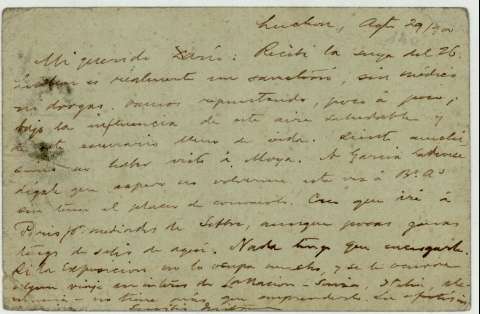 Luchon, Agto 29/900
Mi querido Darío: Recibí la suya del 26.
Luchon es realmente un sanatorio, sin médicos
ni drogas. Vamos repuntando, poco á poco,
bajo la influencia de este aire saludable y
de este escenario lleno de vida. Siento muchí
simo no haber visto á Moya. A García
digale que espero no volverme esta vez á Bs. As.
sin tener el placer de conocerle. Creo que iré á
Paris pa. mediados de Setbre, aunque pocas ganas
tengo de salir de aquí. Nada tengo que encargarle.
Si la Exposicion no lo ocupa mucho, y se le ocurre
algun viaje en interés de La Nacion - Suiza, Italia, Ale
mania - no tiene más que emprenderlo. Lo